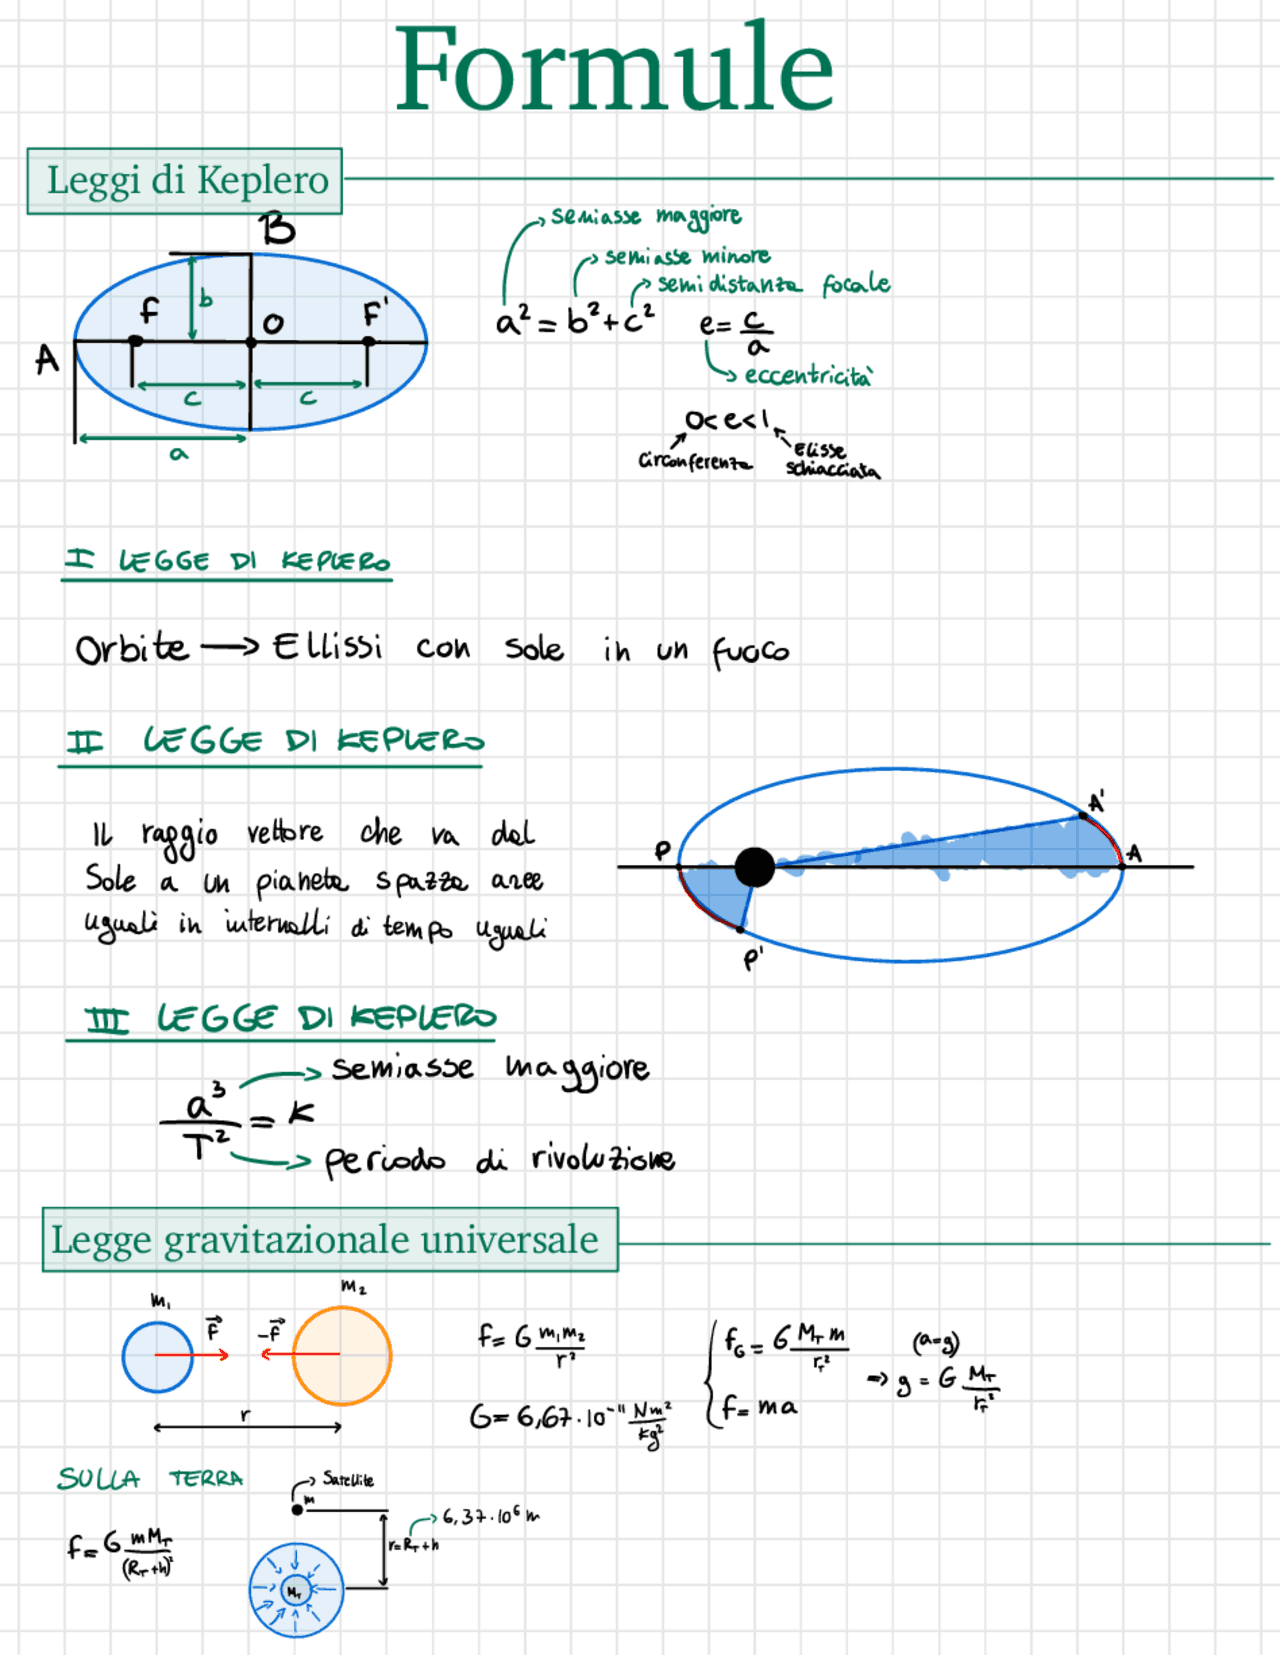 Formule
Leggi di Keplero
B
b
F
O
F'
A
c
c
a
semiasse maggiore
semiasse minore
semidistanza focale
a² = b² + c²
e = c/a
eccentricità
0<e<1
circonferenza
Elisse
schiacciata
I LEGGE DI KEPLERO
Orbite → Ellissi con sole in un fuoco
II LEGGE DI KEPLERO
Il raggio vettore che va dal
Sole a un pianeta spazza aree
uguali in intervalli di tempo uguali
A'
P
A
P'
III LEGGE DI KEPLERO
semiasse maggiore
a³/T² = K
periodo di rivoluzione
Legge gravitazionale universale
m₁
m₂
F⃗
-F⃗
r
F = G m₁m₂/r²
G = 6,67·10⁻¹¹ Nm²/kg²
F_G = G M_T m/r_T²
F = ma
(a=g)
⇒ g = G M_T/r_T²
SULLA TERRA
F = G mM_T/(R_T+h)²
Satellite
m
6,37·10⁶ m
r=R_T+h
M_T